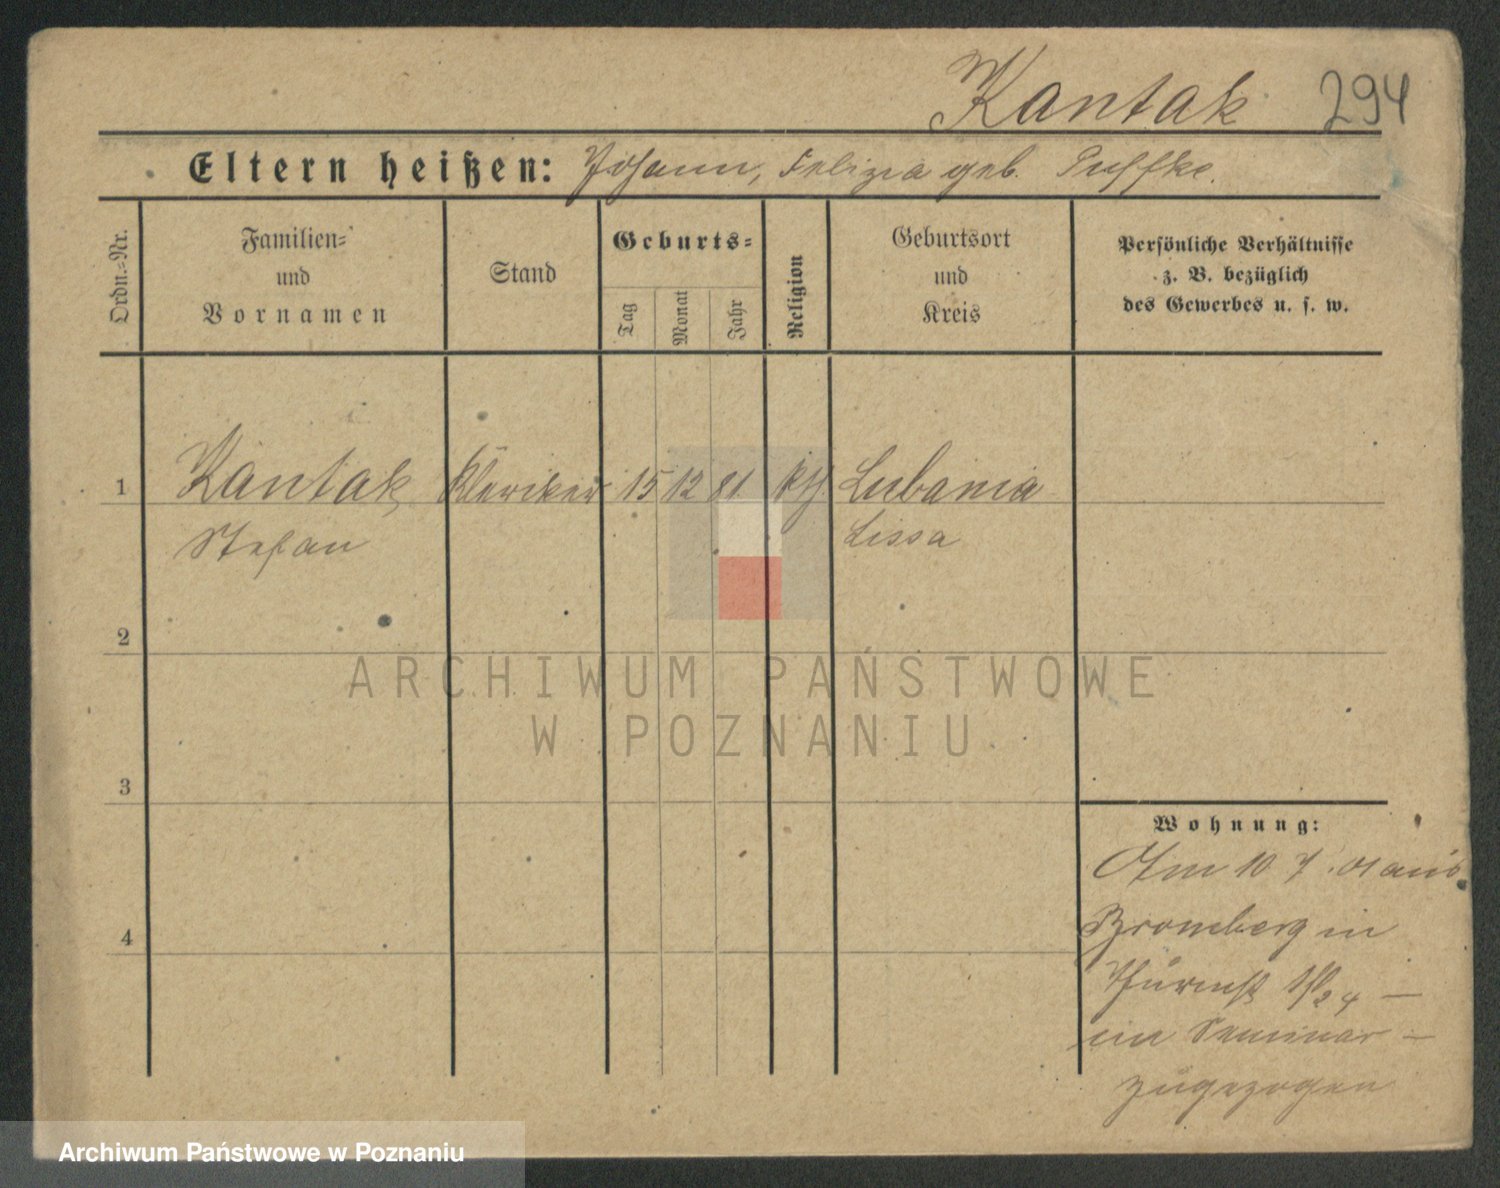 Kantak 294
Eltern heißen: Johann, Felizia geb.
Ordn.=Nr.
Familien=
und
Vornamen
Stand
Geburts=
Tag
Monat
Jahr
Religion
Geburtsort
und
Kreis
Persönliche Verhältnisse
z. B. bezüglich
des Gewerbes u. s. w.
1 Kantak Kleriker 15 12 81 kth Lubania
Stefan Lissa
2
3
4
ARCHIWUM PAŃSTWOWE
W POZNANIU
Wohnung:
Am 10 7. 01 aus
Bromberg in
im Seminar —
zugezogen
Archiwum Państwowe w Poznaniu